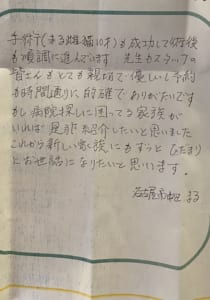 手術(まる雌猫10才)も成功して術後
も順調に進んでいます 先生もスタッフの
皆さんもとても親切で優しいし予約
も時間通りに的確でありがたいです
もし病院探しに困ってる家族が
いれば是非紹介したいと思いました
これから新しい家族にもずっとひだまり
とお世話になりたいと思います。
名古屋市中区 まる